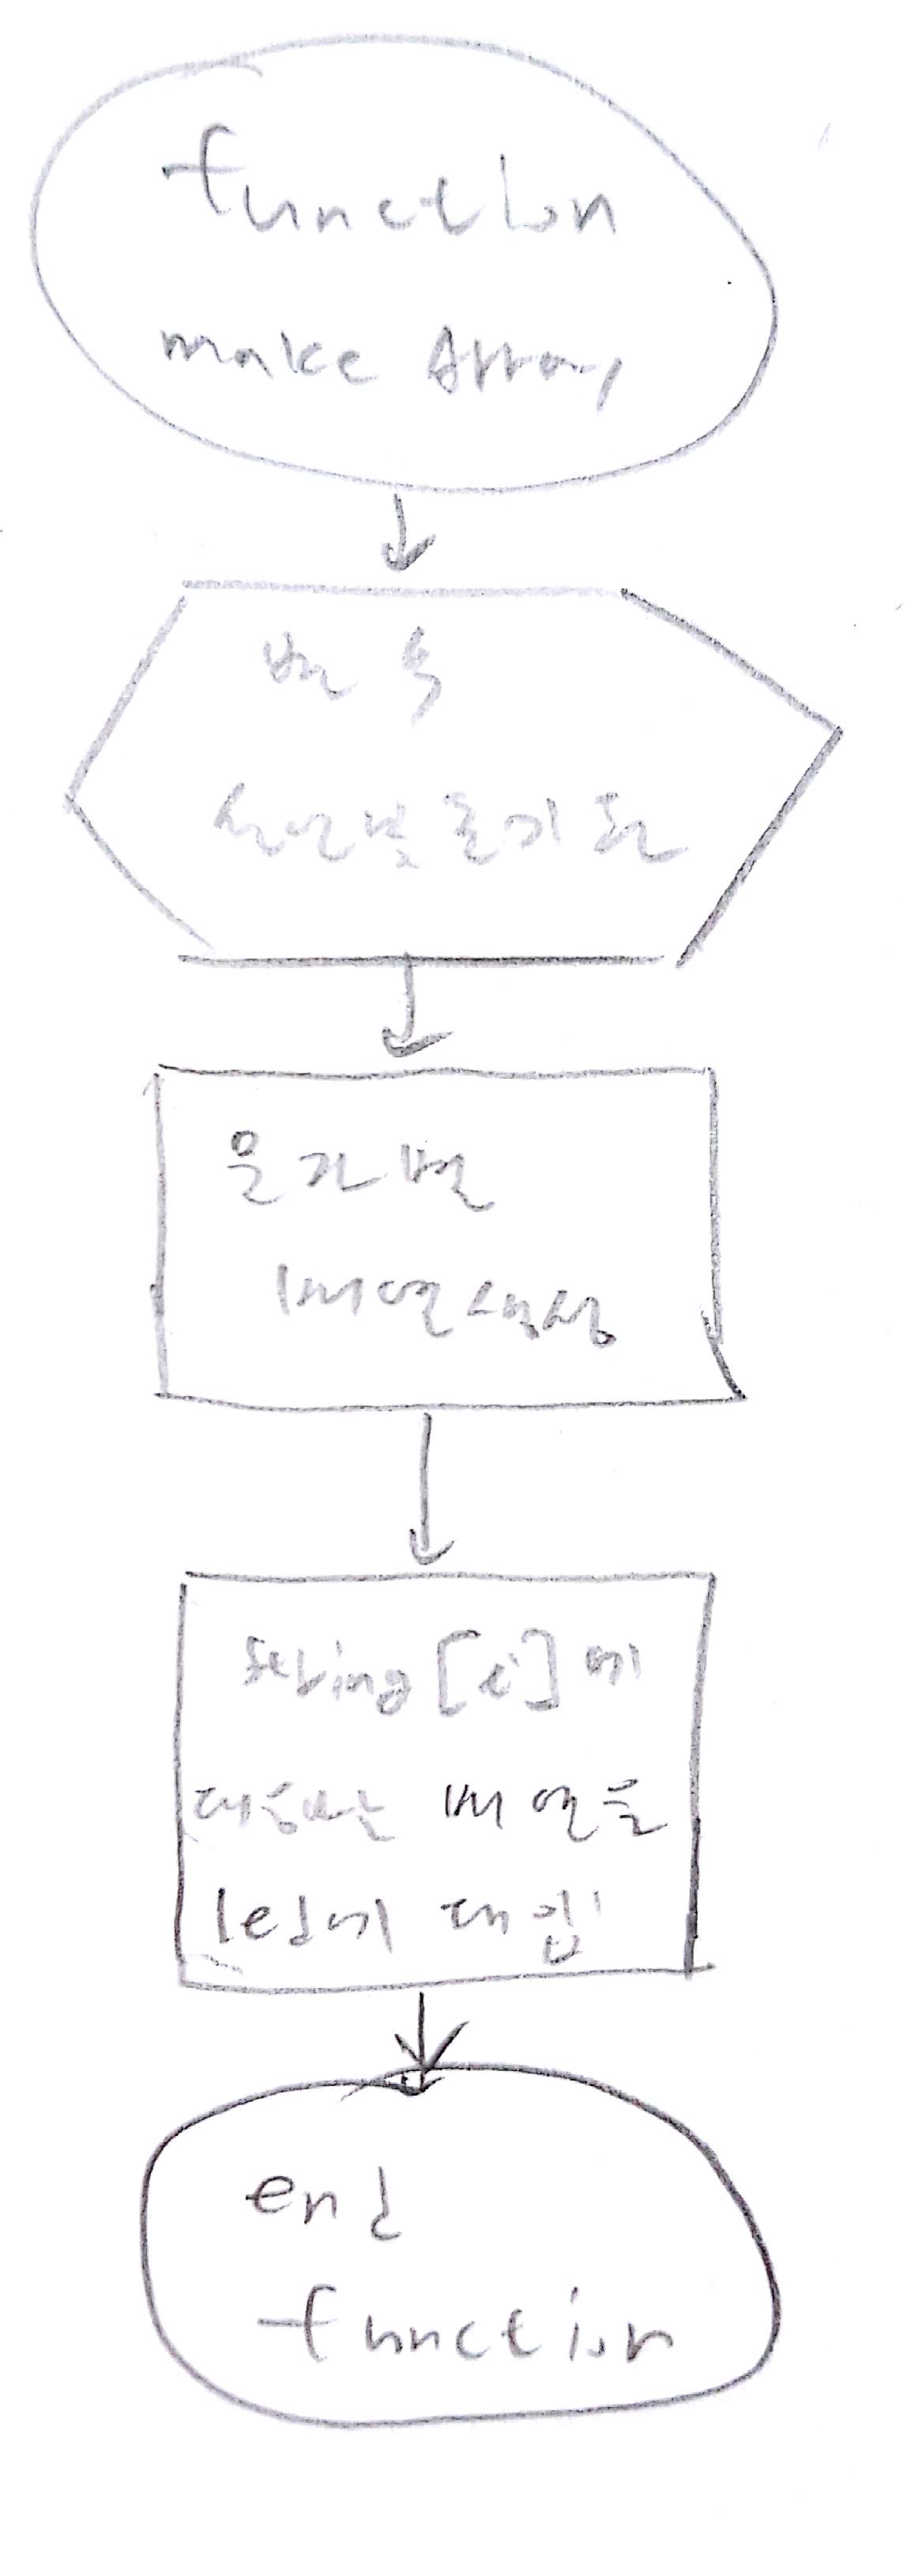 function
make Array
변수
선언및초기화
문자별
배열생성
string[i]에
대응하는 배열을
led에 대입
end
function